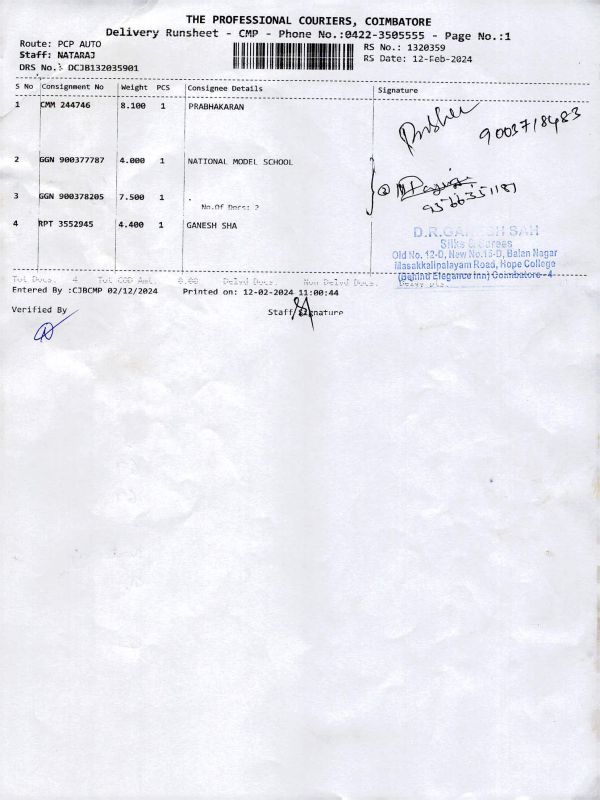 THE PROFESSIONAL COURIERS, COIMBATORE
Delivery Runsheet - CMP - Phone No.:0422-3505555 - Page No.:1
Route: PCP AUTO
RS No.: 1320359
Staff: NATARAJ
RS Date: 12-Feb-2024
DRS No.: DCJB132035901
S No Consignment No Weight PCS Consignee Details Signature
1 CMM 244746 8.100 1 PRABHAKARAN
9003718483
2 GGN 900377787 4.000 1 NATIONAL MODEL SCHOOL
3 GGN 900378205 7.500 1 .
No.Of Docs: 2
4 RPT 3552945 4.400 1 GANESH SHA
D.R.GANESH SAH
Silks & Sarees
Old No. 12-D, New No.15-D, Balan Nagar
Masakkalipalayam Road, Hope College
(Behind Elegance Inn) Coimbatore -4
Tot Docs. 4 Tot COD Amt. 0.00 Delvd Docs. Non Delvd Docs.
Entered By :CJBCMP 02/12/2024 Printed on: 12-02-2024 11:00:44
Verified By
Staff Signature